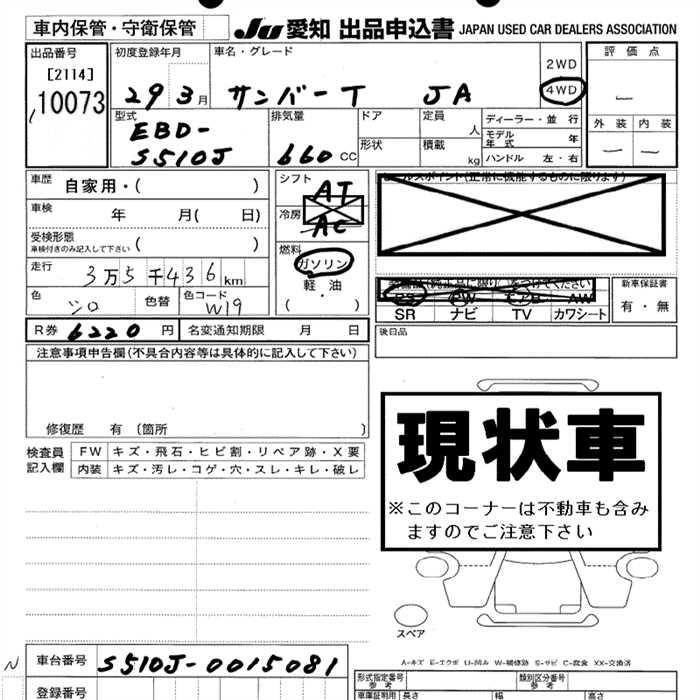 車内保管・守衛保管
JU 愛知 出品申込書 JAPAN USED CAR DEALERS ASSOCIATION
出品番号
[2114]
10073
初度登録年月
29 3月
車名・グレード
サンバーT JA
2WD
4WD
評価点
—
外装 内装
— —
型式
EBD-
S510J
排気量
660 cc
ドア
形状
定員 人
積載 kg
ディーラー・並行
モデル年式 年
ハンドル 左・右
車歴 自家用・( )
車検 年 月( 日)
受検形態
車検付きのみ記入して下さい ( )
走行 3万5千436km
色 シロ 色替 色コード W19
シフト AT
冷房 AC
燃料
ガソリン
軽油
( ・ )
セールスポイント(正常に機能するものに限ります)
PS PW エアB AW
SR ナビ TV カワシート
新車保証書
有・無
R券 6220円 名変通知期限 月 日
後日品
注意事項申告欄(不具合内容等は具体的に記入して下さい)
修復歴 有 〔箇所 〕
検査員記入欄
FW キズ・飛石・ヒビ割・リペア跡・X要
内装 キズ・汚レ・コゲ・穴・スレ・キレ・破レ
現状車
※このコーナーは不動車も含み
ますのでご注意下さい
スペア
A-キズ E-エクボ U-凹み W-補修跡 S-サビ C-腐食 XX-交換済
N
車台番号 S510J-0015081
登録番号
形式指定番号
参考
類別区分番号
参考
車庫証明用 長さ 幅 高さ